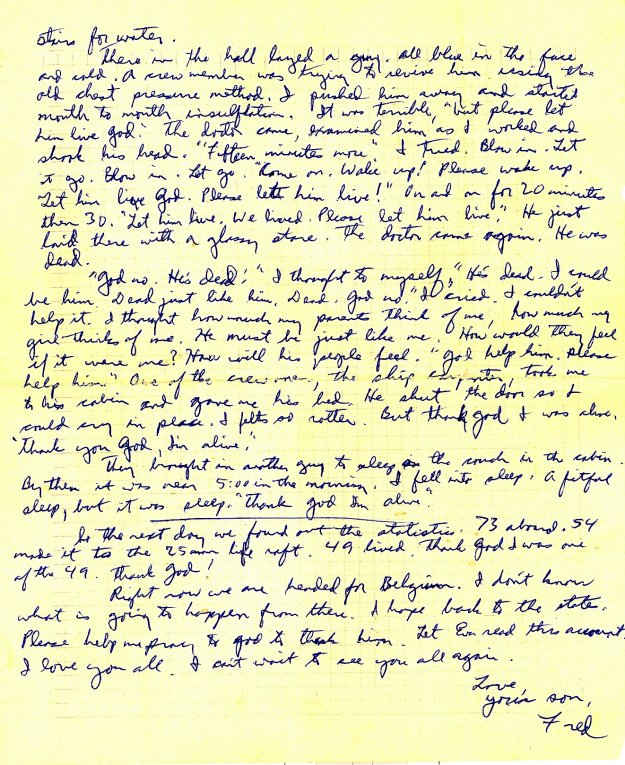 stairs for water.
There in the hall layed a guy. all blue in the face
and cold. A crew member was trying to revive him using the
old chest pressure method. I pushed him away and started
mouth to mouth insulflation. It was terrible, "but please let
him live God." The doctor came, examined him as I worked and
shook his head. "Fifteen minutes more" I tried. Blow in. Let
it go. Blow in. Let go. "Come on. Wake up! Please wake up.
Let him live God. Please let him live!" On and on for 20 minutes
then 30. "Let him live. We lived. Please let him live." He just
laid there with a glassy stare. The doctor came again. He was
dead.
"God no. He's dead!" I thought to myself, "He's dead. I could
be him. Dead just like him. Dead. God no." I cried. I couldn't
help it. I thought how much my parents think of me, how much my
girl thinks of me. He must be just like me. How would they feel
if it were me? How will his people feel. "God help him. Please
help him." One of the crewmen, the ship carpenter, took me
to his cabin and gave me his bed. He shut the door so I
could cry in peace. I felt so rotten. But thank God I was alive.
"Thank you God, I'm alive."
They brought in another guy to sleep on the couch in the cabin.
By then it was near 5:00 in the morning. I fell into sleep. A fitful
sleep, but it was sleep. "Thank God I'm alive".
So the next day we found out the statistics. 73 aboard. 54
made it to the 25 man life raft. 49 lived. Thank God I was one
of the 49. Thank God!
Right now we are headed for Belgium. I don't know
what is going to happen from there. I hope back to the states.
Please help me pray to God to thank him. Let Eva read this account.
I love you all. I can't wait to see you all again.
Love,
your son,
Fred